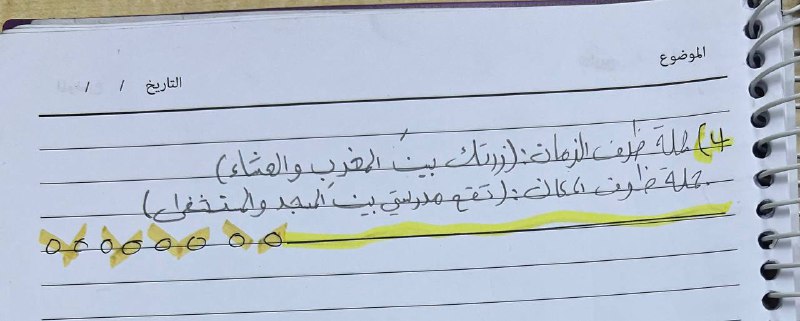 الموضوع
التاريخ / /
4) جملة ظرف الزمان: (زرتك بينَ المغرب والعشاء)
جملة ظرف المكان: (تقع مدرستي بينَ المسجد والمتخفى)